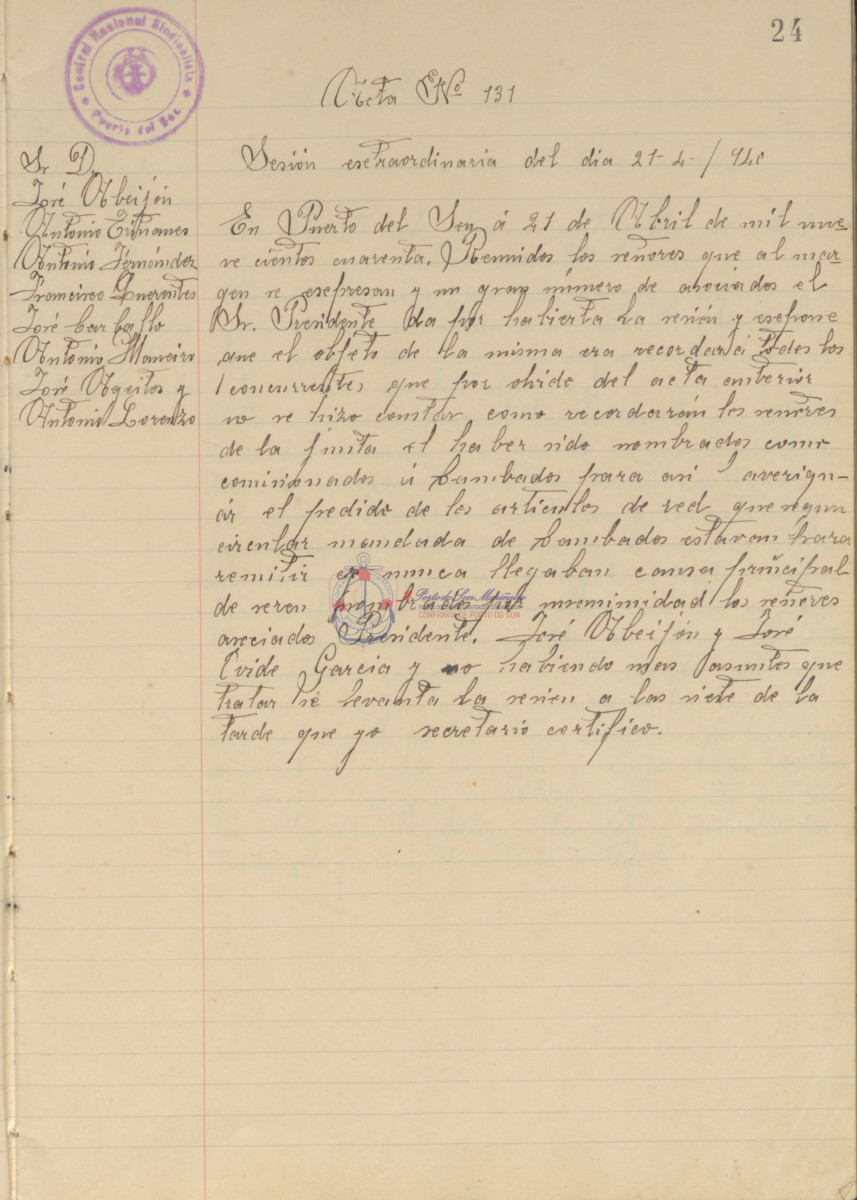 24
Central Nacional Sindicalista
Puerto del Son
Acta Nº 131
Sr D.
José Abeijón
Antonio
Antonio Fernández
Francisco
José Carballo
Antonio Maneiro
José Ageitos y
Antonio Lorenzo
Sesión esetraordinaria del dia 21-4-/940
En Puerto del Son á 21 de Abril de mil nue-
ve cientos cuarenta. Reunidos los señores que al mar-
gen se esepresan y un gran número de asociados el
Sr. Presidente da por habierta la sesión y esepone
que el objeto de la misma era recordar á todos los
concurrentes que por olvido del acta anterior
no se hizo constar, como recordarán los señores
de la junta el haber sido nombrados como
comisionados á Cambados para asi averigu-
ár el pedido de los articulos de red que segun
circular mandada de Cambados estavan para
remitir y nunca llegaban causa principal
de seren nombrados por unemimidad los señores
asociados Presidente. José Abeijón y José
Ovide Garcia y no habiendo mas asuntos que
tratar sé levanta la sesion a las siete de la
tarde que yo secretario certifico.
CONFRARÍA DE PORTO DO SON